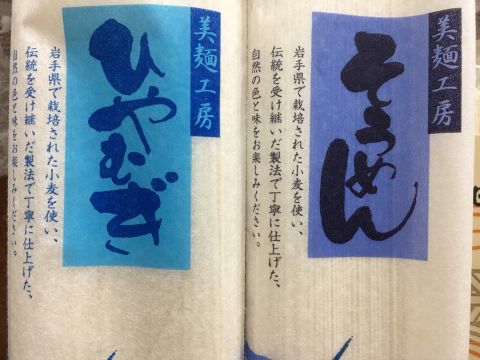 美麺工房
そうめん
岩手県で栽培された小麦を使い、
伝統を受け継いだ製法で丁寧に仕上げた、
自然の色と味をお楽しみください。
美麺工房
ひやむぎ
岩手県で栽培された小麦を使い、
伝統を受け継いだ製法で丁寧に仕上げた、
自然の色と味をお楽しみください。